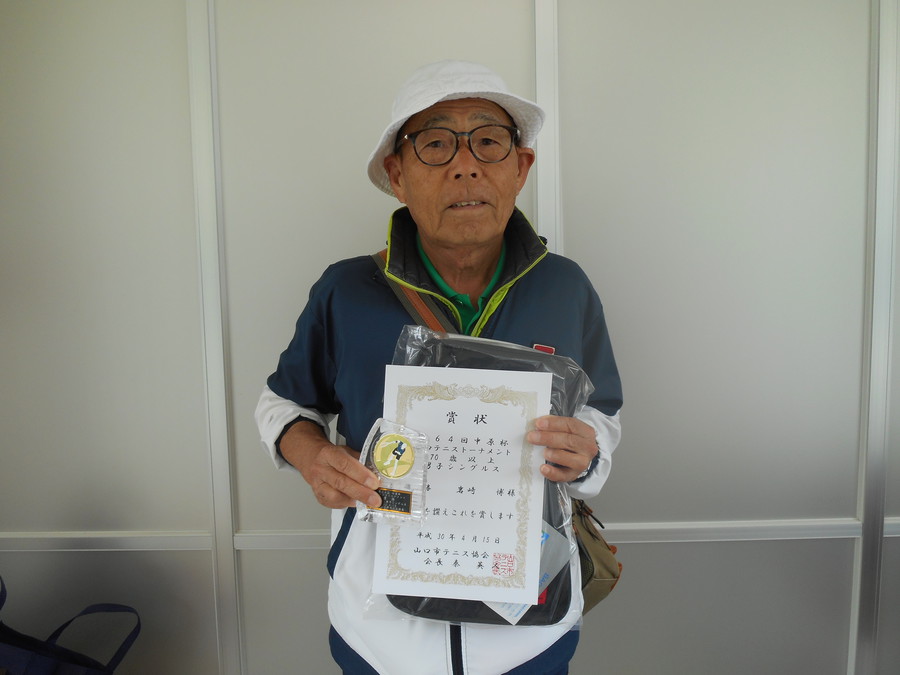 賞状
64回中原杯
テニストーナメント
70歳以上
男子シングルス
岩崎 博様
を讃えこれを賞します
平成30年4月15日
山口市テニス協会
会長 泰 英